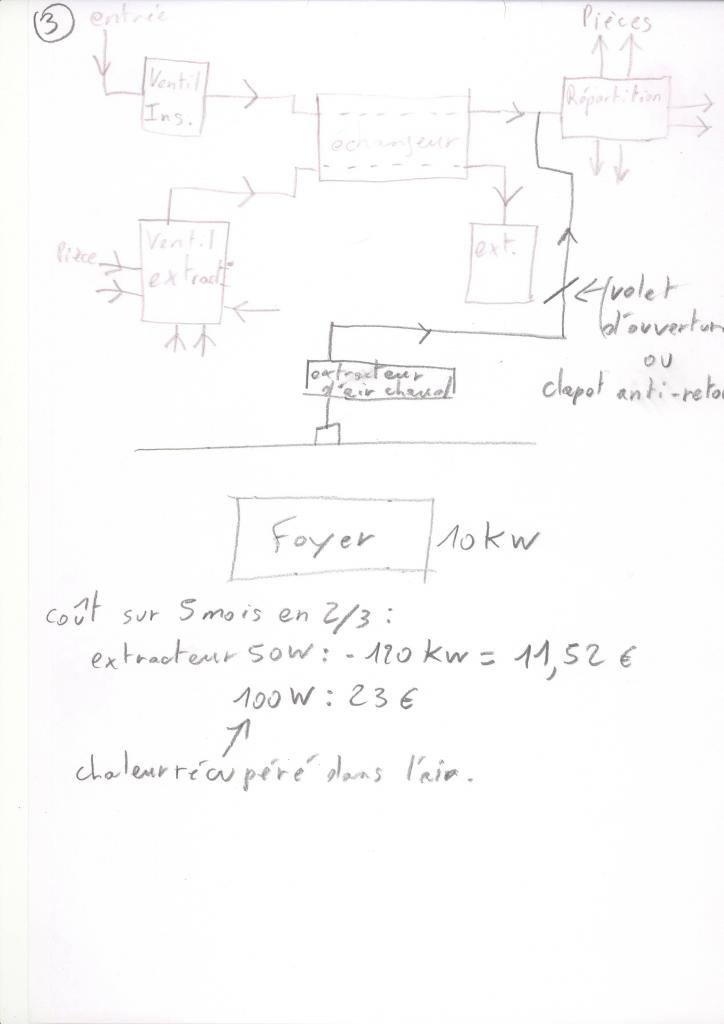 3
entrée
Pièces
Ventil
Ins.
Répartition
échangeur
Ventil
extract°
Pièce
ext.
volet
d'ouverture
ou
clapot anti-retou
extracteur
d'air chaud
Foyer 10 kW
coût sur 5 mois en 2/3 :
extracteur 50W : -120 kw = 11,52 €
100W : 23 €
chaleur récupéré dans l'air.